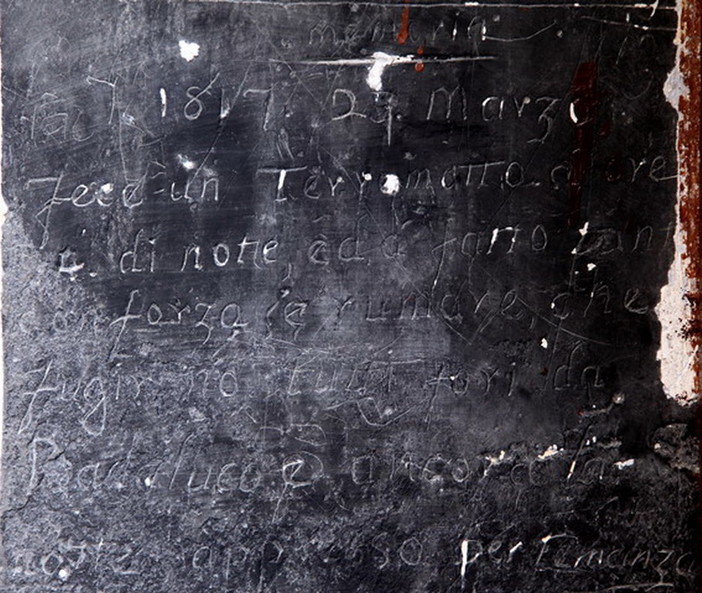 memoria
1817. 23. Marzo
fece un Terramotto a ore
di notte, ed à fatto tant
con forza e rumore, che
fugirno tutti fori da
Badaluco e ancora la
notte appresso per Temanza